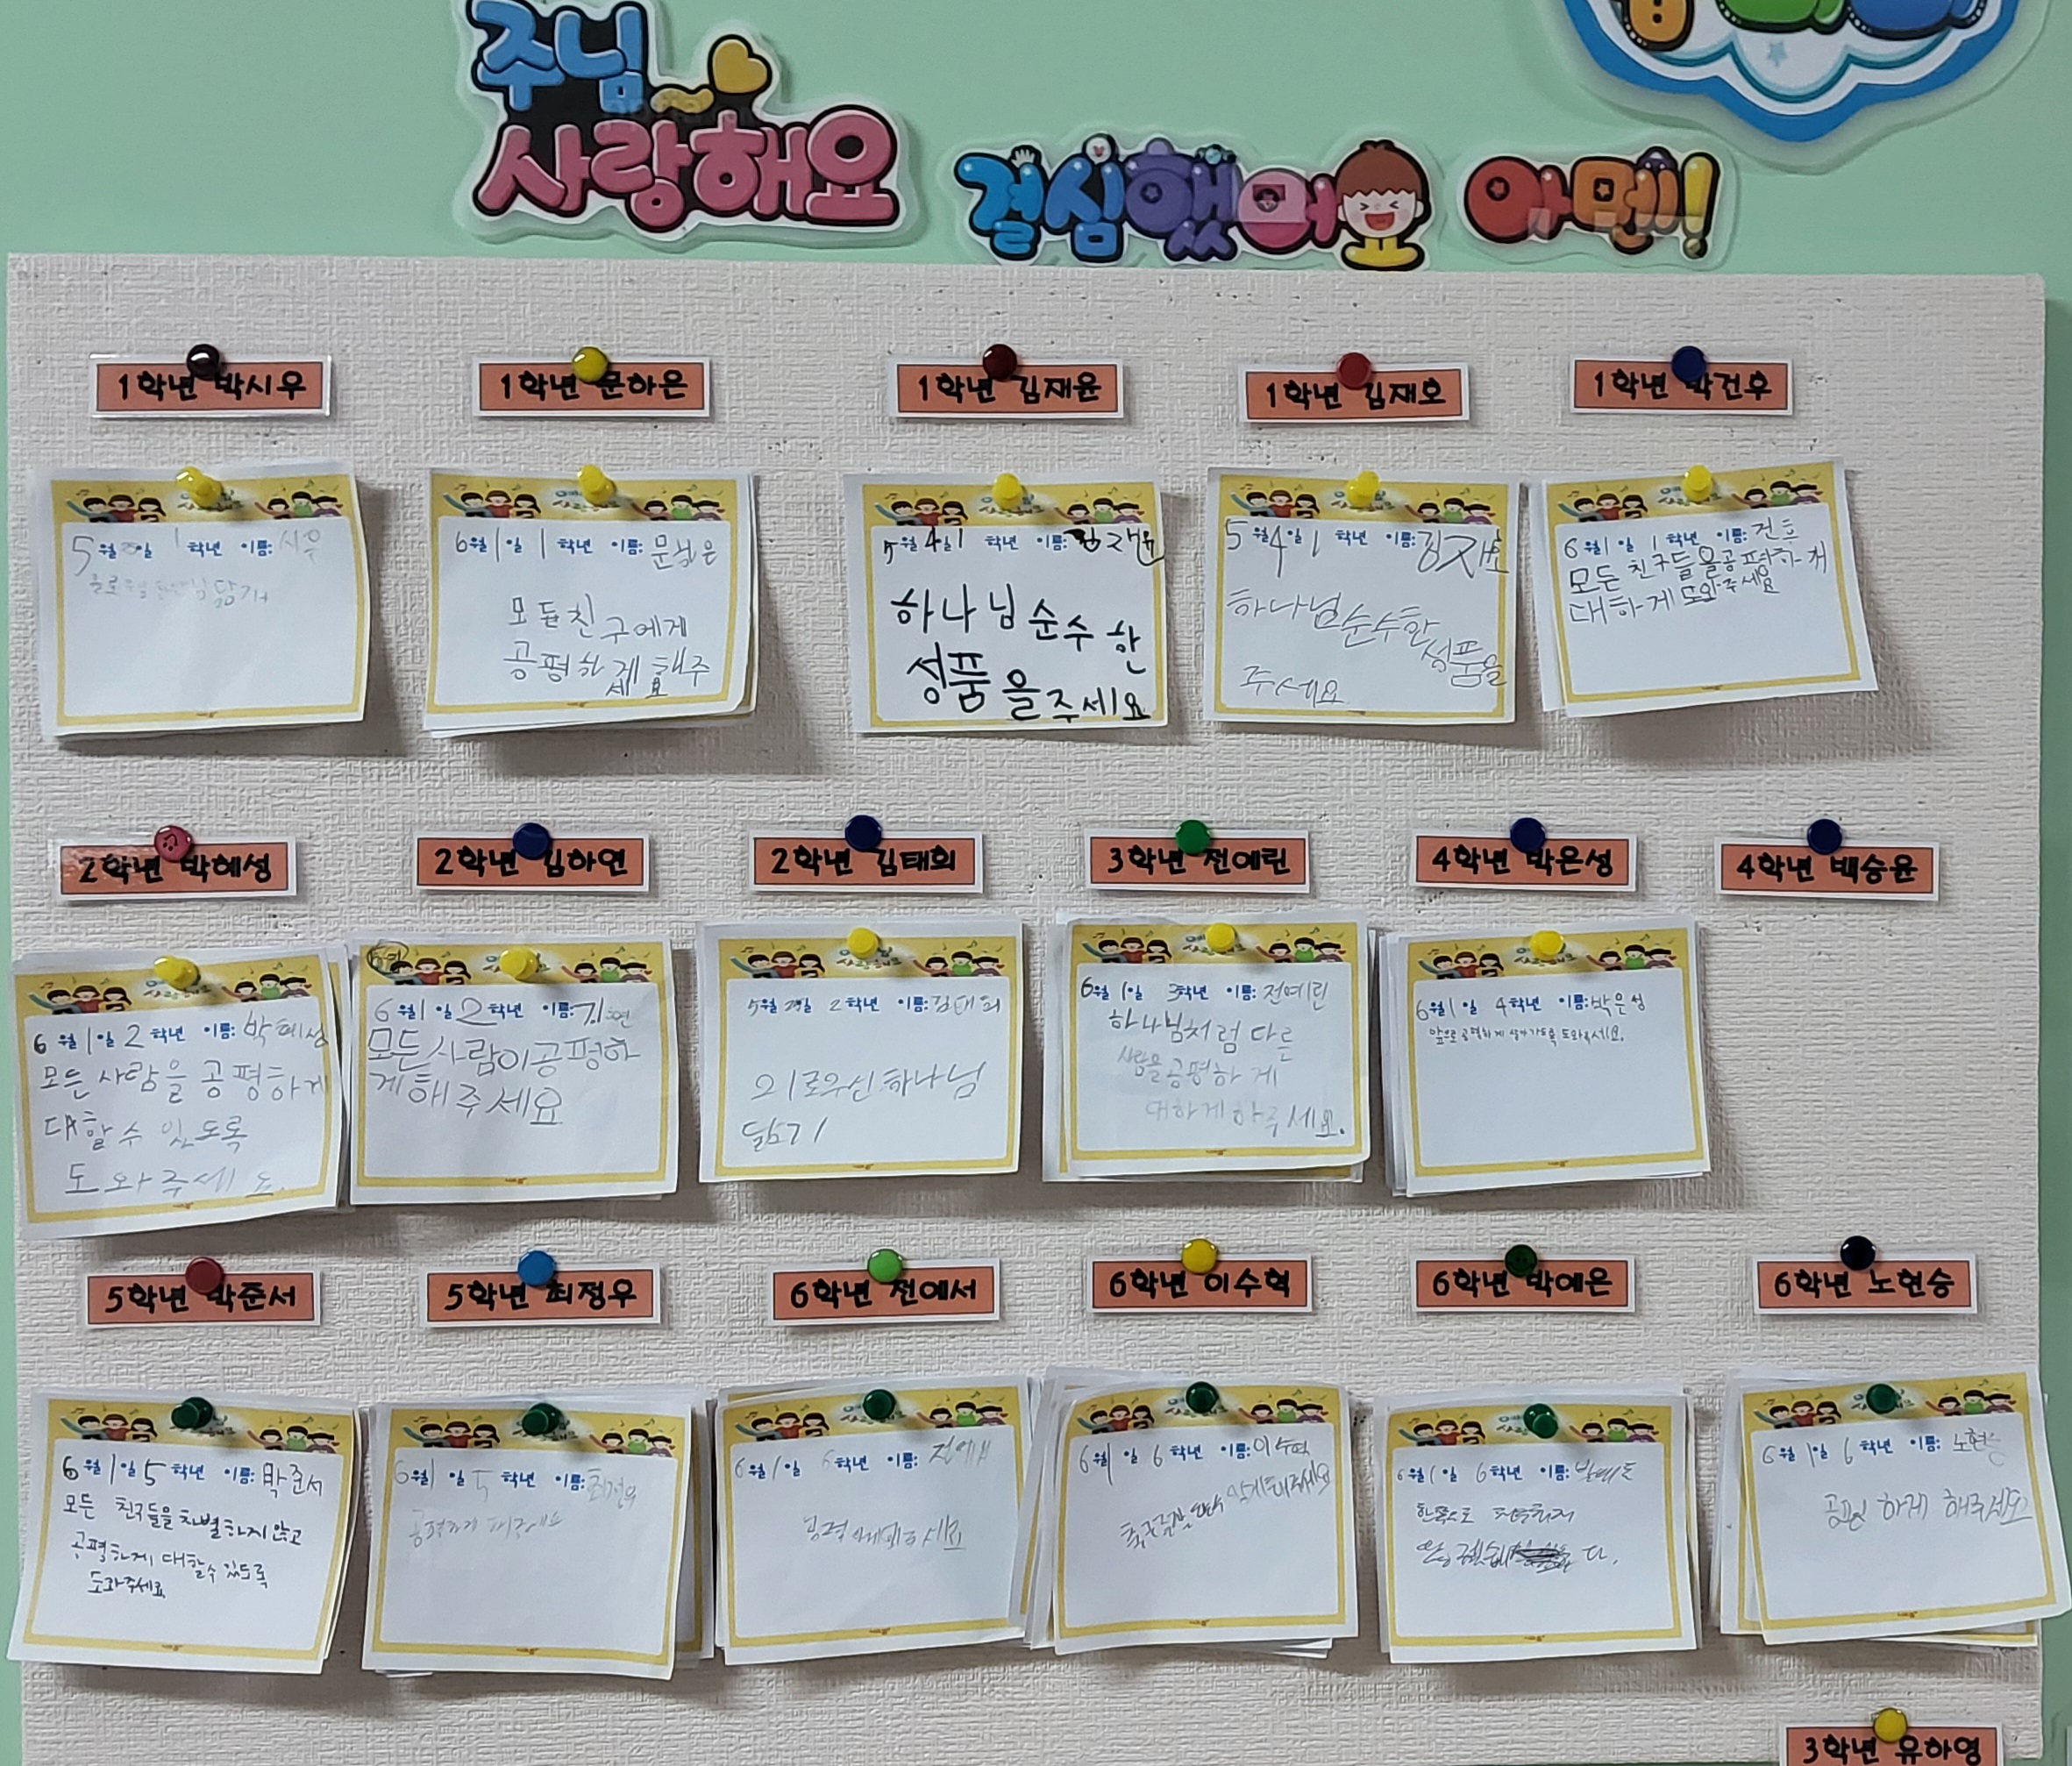 주님
사랑해요
결심했어요 아멘!
1학년 박시우
1학년 문하은
1학년 김재윤
1학년 김재호
1학년 박건우
5월 일 1 학년 이름: 시우
닮기
6월 1일 1 학년 이름: 문하은
모든 친구에게
공평하게 해주
세요
5월 4일 1 학년 이름: 김재윤
하나님 순수한
성품을 주세요
5월 4일 1 학년 이름: 김재호
하나님 순수한 성품을
주세요
6월 1일 1 학년 이름: 건호
모든 친구들을 공평하게
대하게 도와주세요
2학년 박혜성
2학년 김하연
2학년 김태희
3학년 전예린
4학년 박은성
4학년 백승윤
6월 1일 2 학년 이름: 박혜성
모든 사람을 공평하게
대할 수 있도록
도와주세요.
6월 1일 2 학년 이름:
모든 사람이 공평하
게 해주세요
5월 일 2 학년 이름: 김태희
의로우신 하나님
닮기
6월 1일 3학년 이름: 전예린
하나님처럼 다른
사람을 공평하게
대하게 하주세요.
6월 1일 4학년 이름: 박은성
앞으로 공평하게 살아가도록 도와주세요.
5학년 박준서
5학년 최정우
6학년 전예서
6학년 이수혁
6학년 박예은
6학년 노현승
6월 1일 5 학년 이름: 박준서
모든 친구들을 차별하지 않고
공평하게 대할수 있도록
도와주세요
6월 1일 5 학년 이름: 최정우
공평하게 해주세요
6월 1일 6 학년 이름: 전예서
6월 1일 6 학년 이름: 이수혁
6월 1일 6학년 이름: 박예은
한쪽으로
다.
6월 1일 6 학년 이름: 노현승
하게 해주세요
3학년 유하영